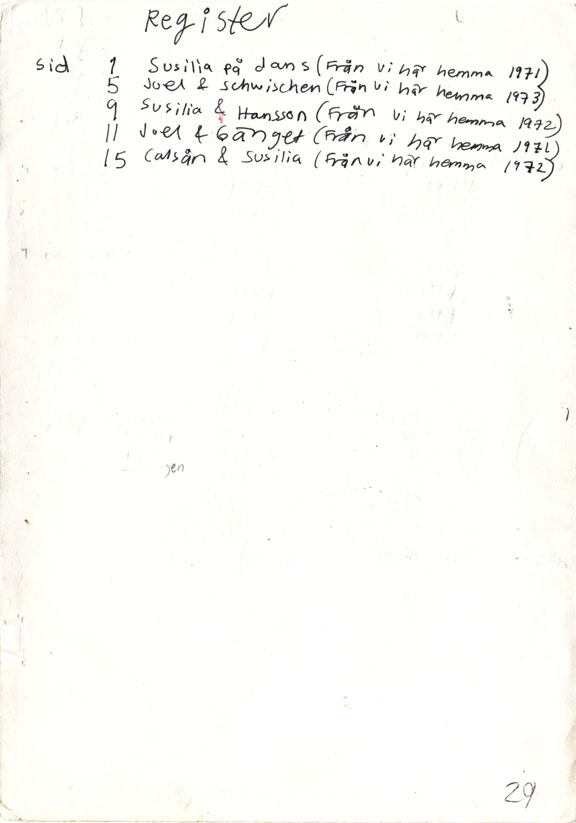 Register
sid 1 Susilia på dans (Från vi här hemma 1971)
5 Joel & Schwischen (Från vi här hemma 1973)
9 Susilia & Hansson (Från vi här hemma 1972)
11 Joel & Gänget (Från vi här hemma 1971)
15 Calsån & Susilia (Från vi här hemma 1972)
gen
29